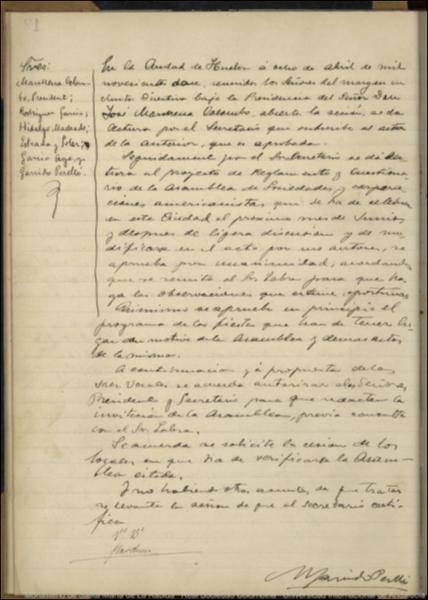 Sres:
Marchena Colom-
bo, President;
Rodriguez Garcia;
Hidalgo Machado;
Estrada y Soler;
Garcia
Garrido Perelló.
En la Ciudad de Huelva á ocho de abril de mil
novecientos doce, reunidos los Señores del margen en
Junta Directiva bajo la Presidencia del Señor Don
José Marchena Colombo, abierta la sesión, se da
lectura por el Secretario que suscribe al acta
de la anterior, que es aprobada.
Seguidamente por el Sr. Secretario se dá lec-
tura al proyecto de Reglamento y Cuestiona-
rio de la Asamblea de Sociedades y corpora-
ciones americanistas que se ha de celebrar
en esta Ciudad el próximo mes de Junio,
y despues de ligera discusion y de mo-
dificarse en el acto por sus autores, se
aprueba por unanimidad, acordandose
que se remita al Sr. Labra para que ha-
ga las observaciones que estime oportunas
Asimismo se aprueba en principio el
programa de las fiestas que han de tener lu-
gar con motivo de la Asamblea y demas actos
de la misma.
A continuacion y á propuesta de los
Sres. Vocales se acuerda autorizar a los Señores
Presidente y Secretario para que redacten la
invitación de la Asamblea, previa consulta
con el Sr. Labra.
Se acuerda se solicite la cesion de los
locales en que ha de verificarse la Asam-
blea citada.
Y no habiendo otros asuntos de que tratar
se levanta la sesion de que el secretario certi-
fica
Vº Bº
Marchena